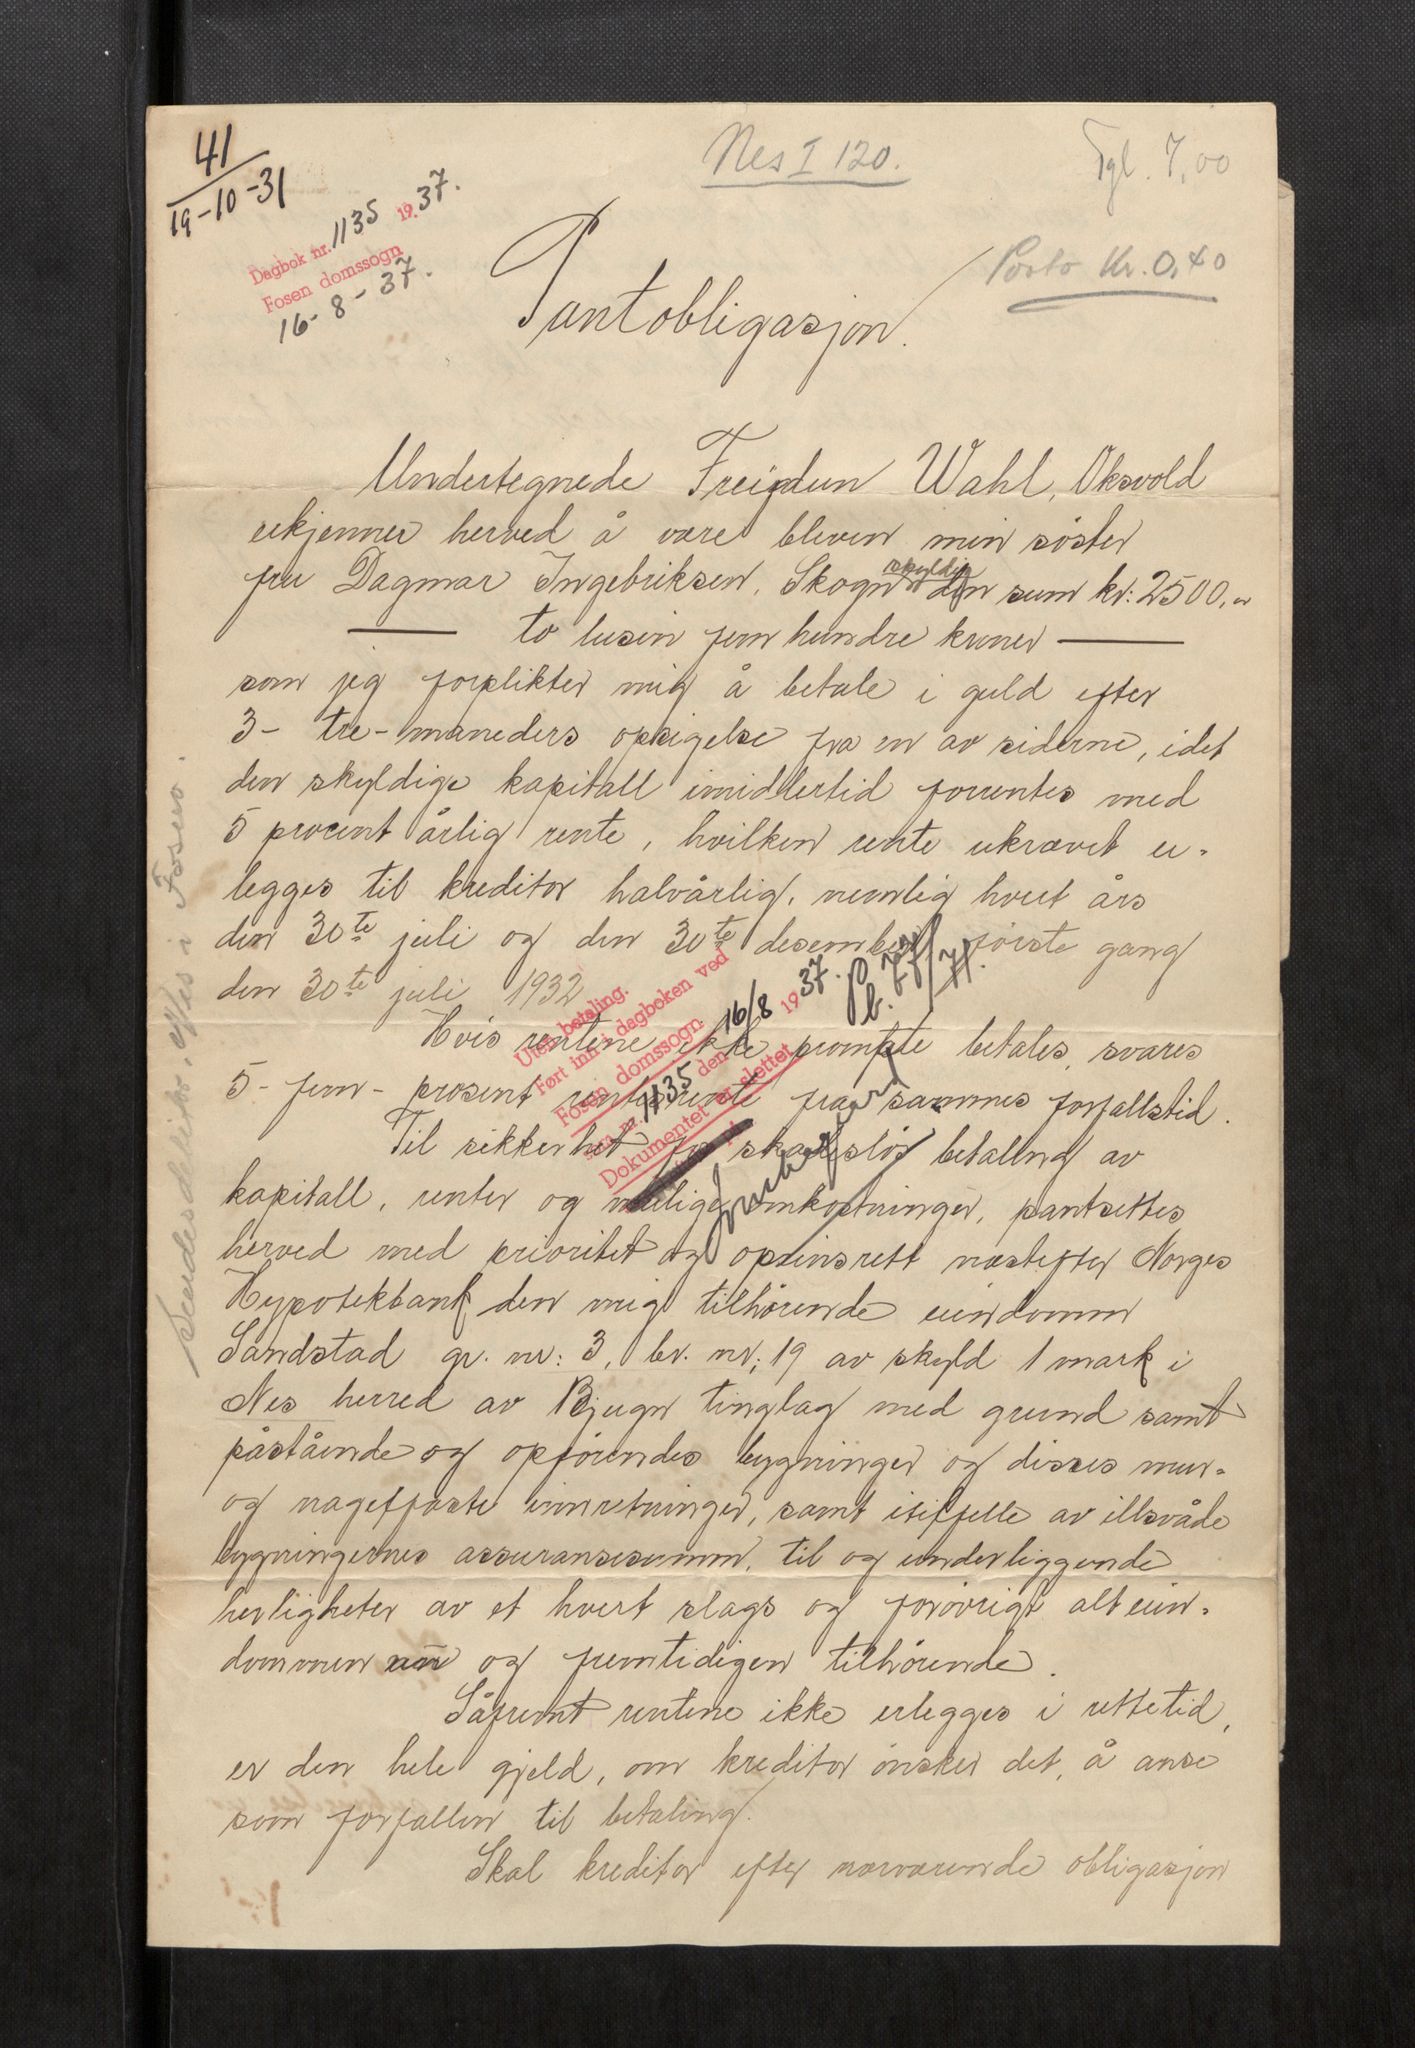 41
19-10-31
Nes I 120.
Tgl. 7,00
Dagbok nr. 1135 19 37.
Fosen domssogn
16-8-37.
Porto Kr. 0,40
Pantobligasjon.
Undertegnede Freidun Wahl, Oksvold
erkjenner herved å være bleven min søster
fru Dagmar Ingebriksen, Skogn skyldig den sum kr: 2500,
to tusin fem hundre kroner
som jeg forplikter mig å betale i guld efter
3- tre- måneders opsigelse fra en av siderne, idet
den skyldige kapitall imidlertid forrentes med
5 procent årlig rente, hvilken rente ukrævet er-
legges til kreditor halvårlig, nemlig hvert års
den 30te juli og den 30te desember første gang
den 30te juli 1932
Hvis rentene ikke prompte betales, svares
5- fem- prosent rentesrente fra sammes forfallstid.
Til sikkerhet for skadesløs betaling av
kapitall, renter og mulige omkostninger, pantsettes
herved med prioritet og opsinsrett næstefter Norges
Hypotekbank den mig tilhørende eiendomm
Sandstad gr. nr: 3, br. nr; 19 av skyld 1 mark i
Nes herred av Bjugn tinglag med grund samt
påstående og opførendes bygninger og disses mur-
og nagelfaste innretninger, samt itilfelle av illsvåde
bygningernes assuransesumm, til og underliggende
herligheter av et hvert slags og forøvrigt alt eien-
dommen nu og fremtidigen tilhørende.
Såfremt rentene ikke erlegges i rette tid,
er den hele gjeld, om kreditor ønsker det, å anse
som forfallen til betaling.
Skal kreditor efter nærværende obligasjon
Uten betaling.
Ført inn i dagboken ved
Fosen domssogn.
som nr. 1135 den 16/8 1937.
Dokumentet er slettet
Sendes dKktor. efles i Fosen.